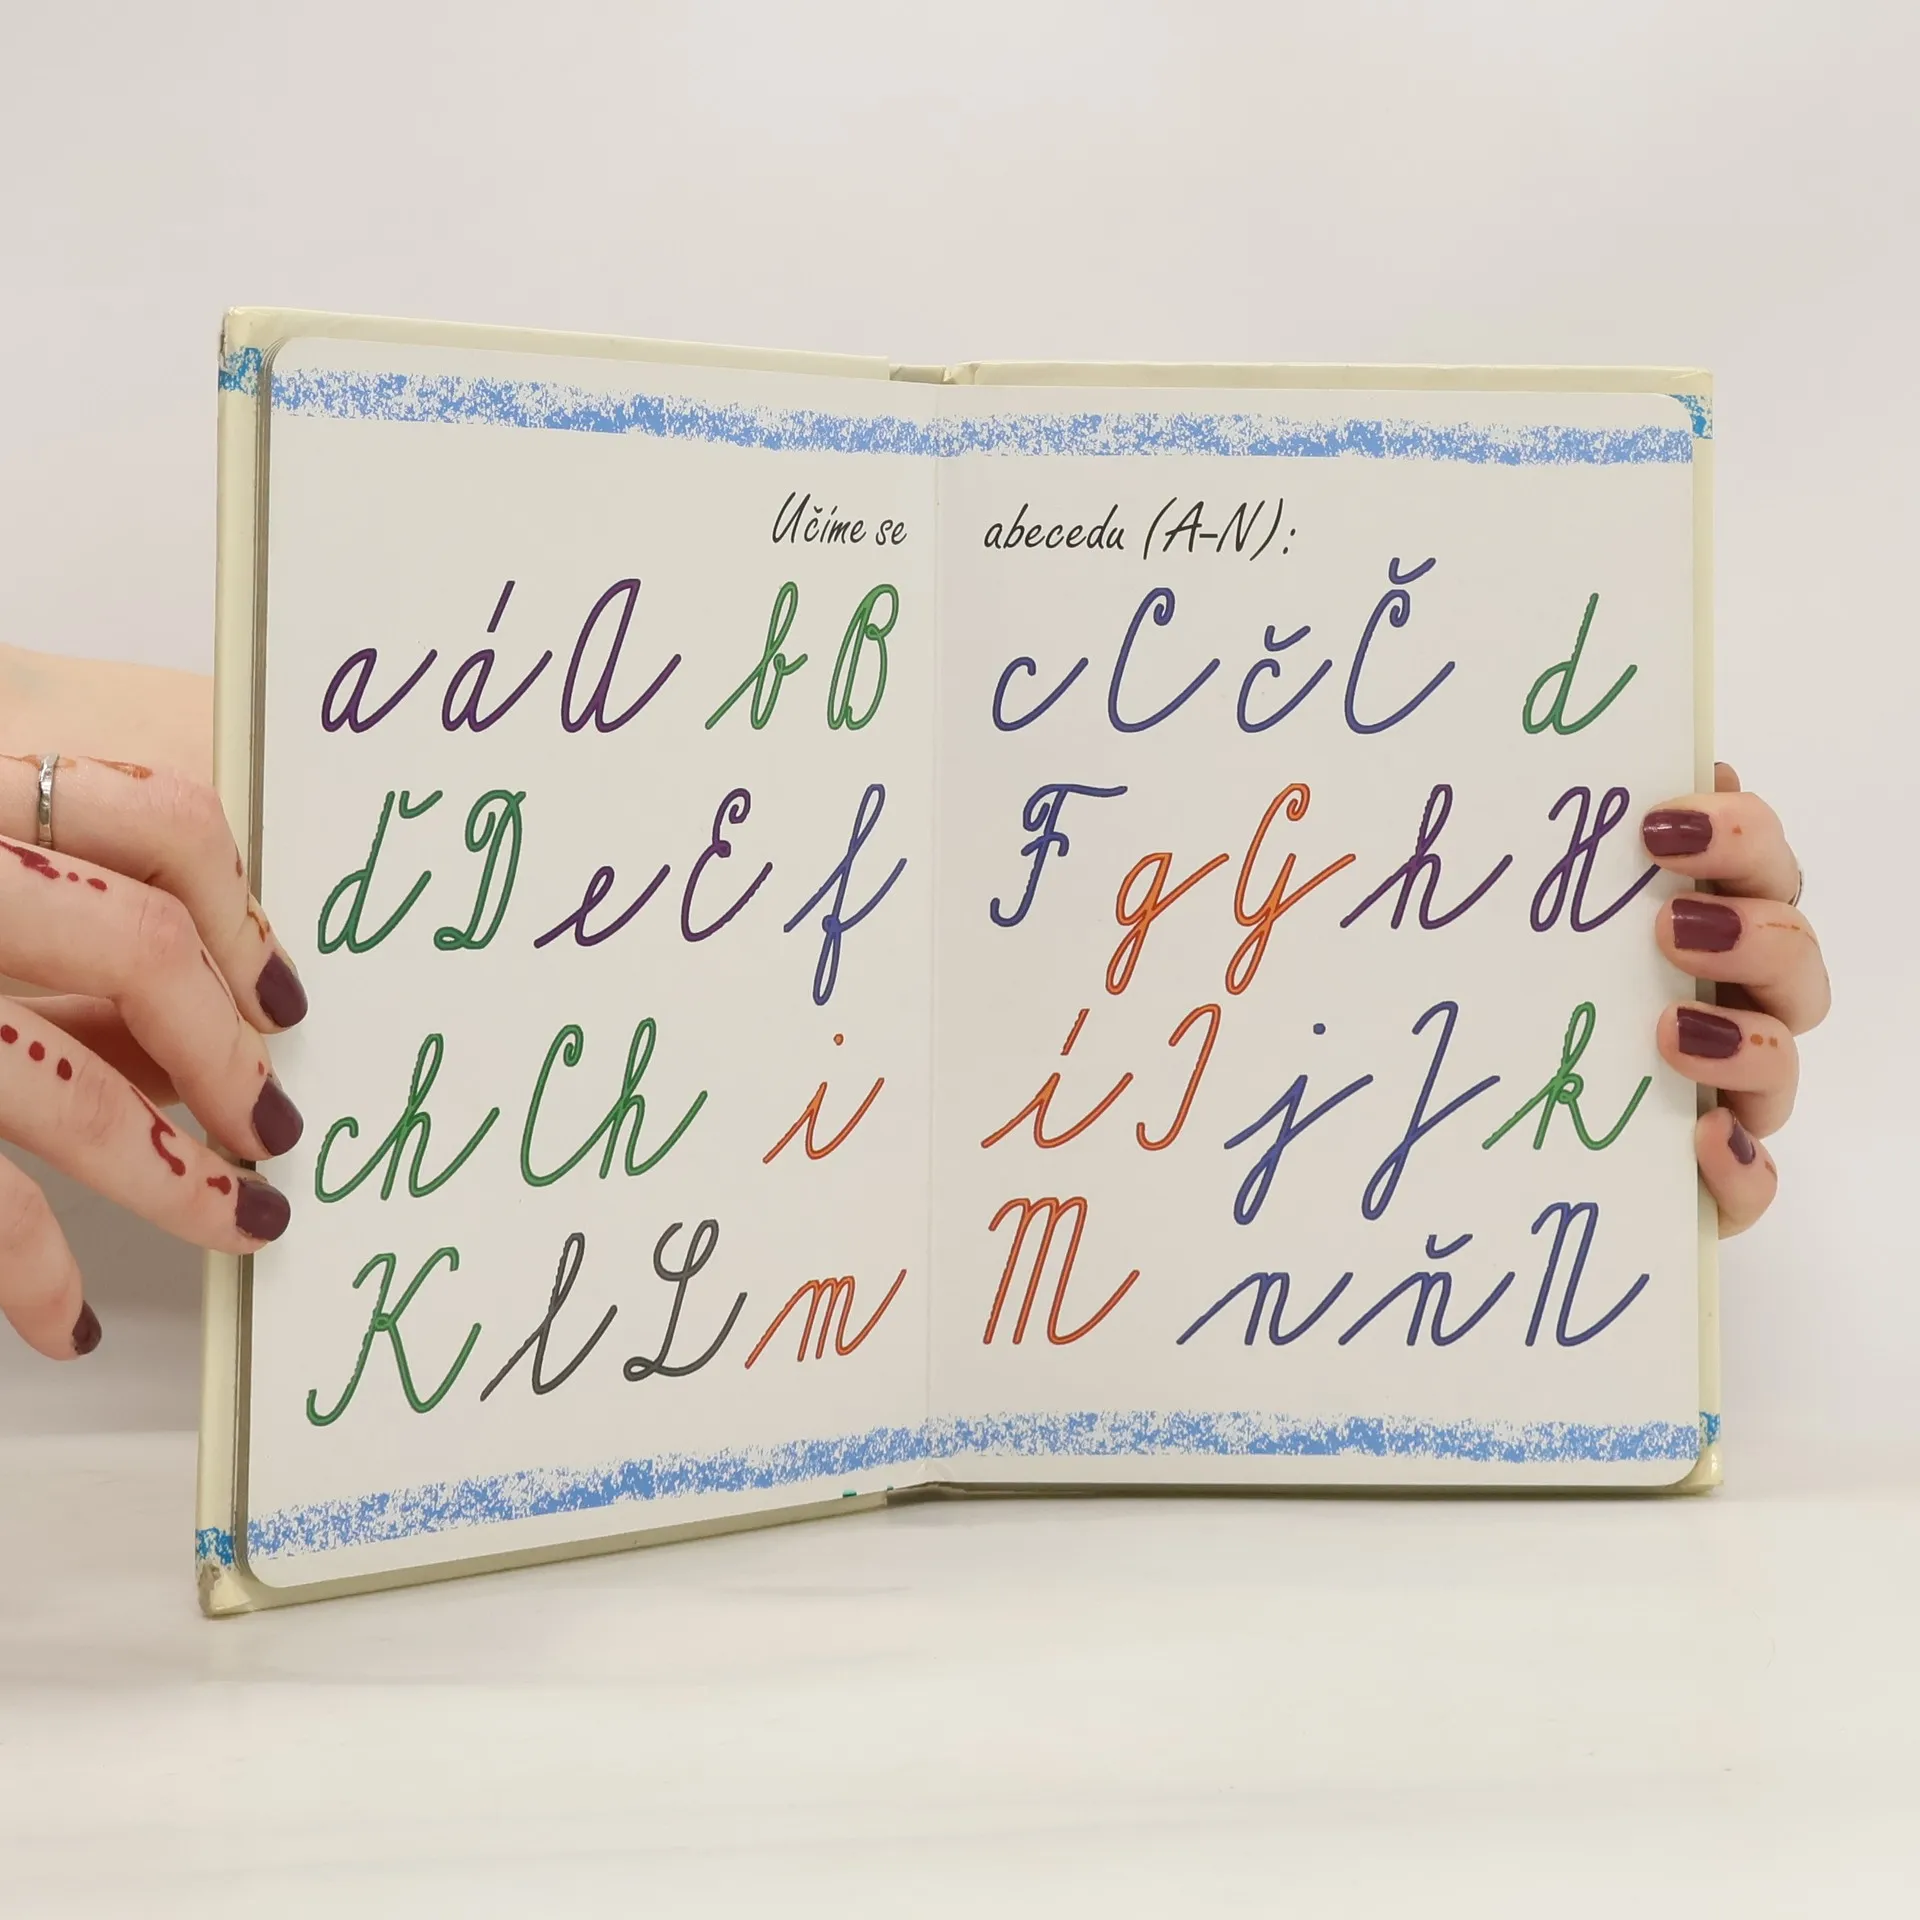 Učíme se abecedu (A-N):
a á A b B c C č Č d
ď D e E f F g G h H
ch Ch i í I j J k
K l L m M n ň N